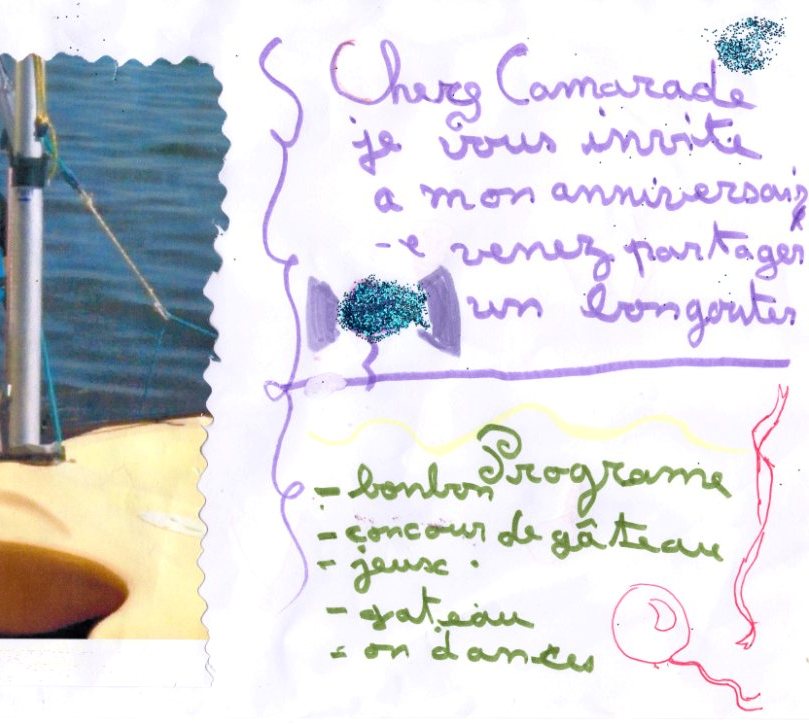 Cherg Camarade
je vous invite
a mon anniversair
-e venez partager
un bon gouter
Programe
- bonbon
- concour de gâteau
- jeux .
- gateau
- on dances